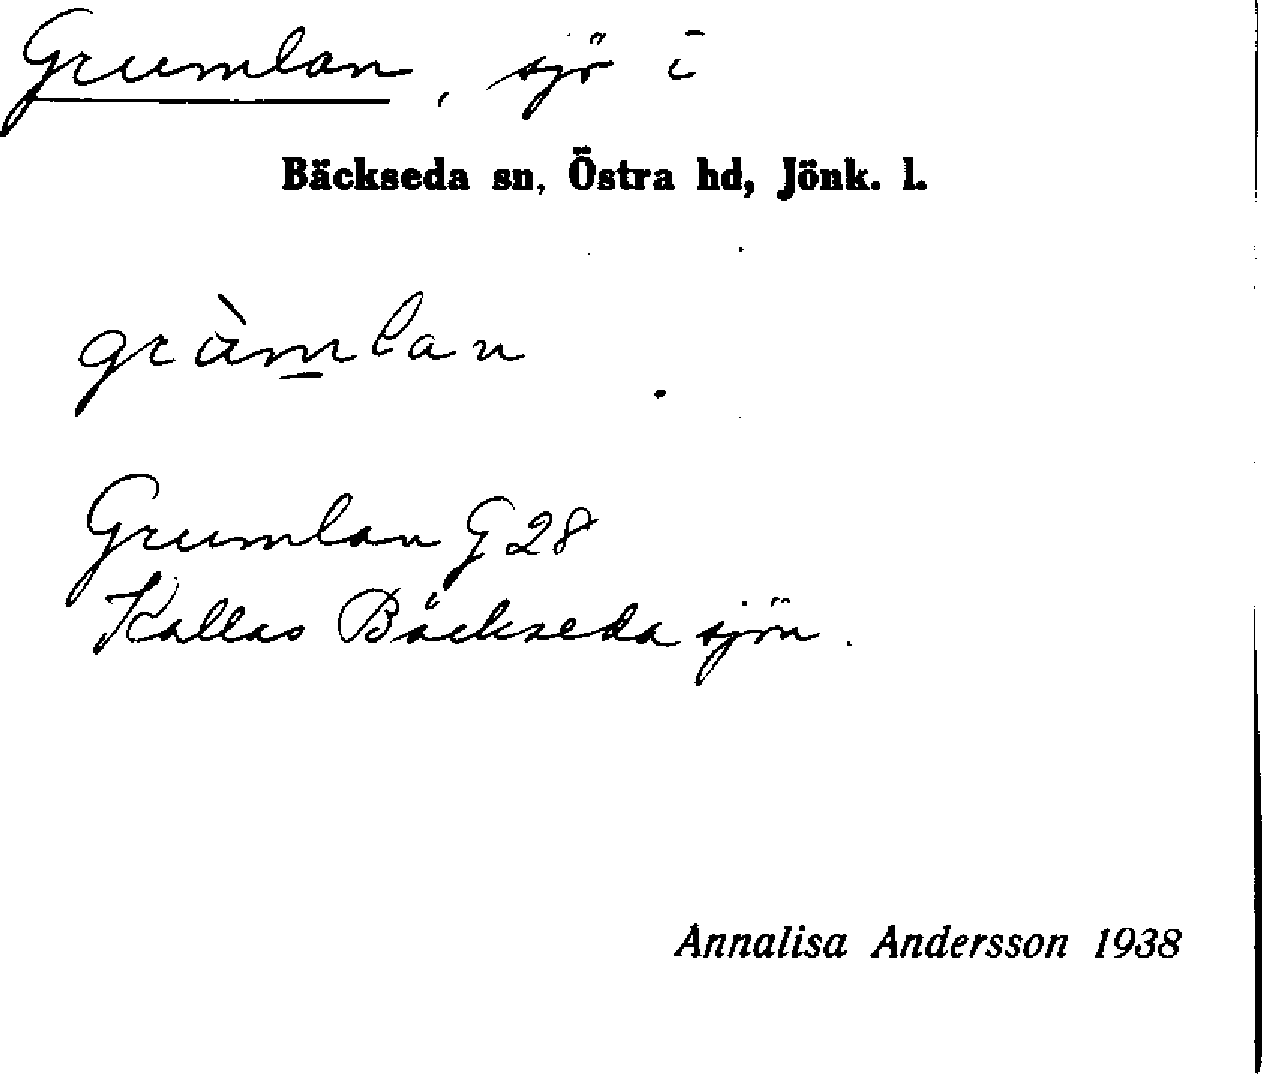 Grumlan, sjö i
Bäckseda sn, Östra hd, Jönk. l.
grùmlan
Grumlan G 28
Kallas Bäckseda sjön.
Annalisa Andersson 1938